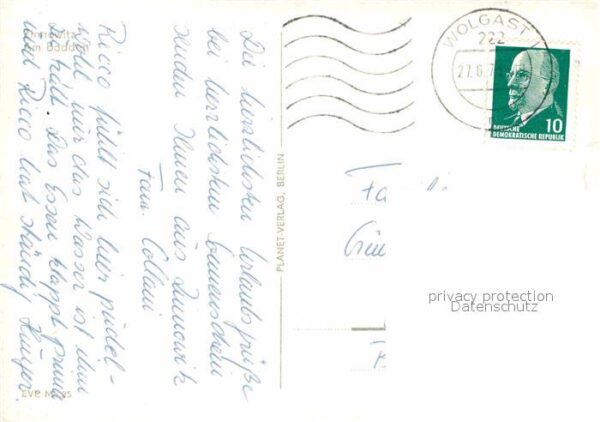 Zinnowitz
Am Bodden
Die herzlichsten Urlaubsgrüße
bei herrlichstem Sonnenschein
senden Ihnen aus Zinnowitz
Fam. Collani
Ricco fühlt sich hier pudel-
wohl nur das Wasser ist ihm
zu kalt. Das Essen klappt prima
und Ricco hat ständig Hunger.
EVP M
PLANET-VERLAG, BERLIN
WOLGAST
222
27.6.7
10
DEUTSCHE
DEMOKRATISCHE REPUBLIK
Famili
privacy protection
Datenschutz